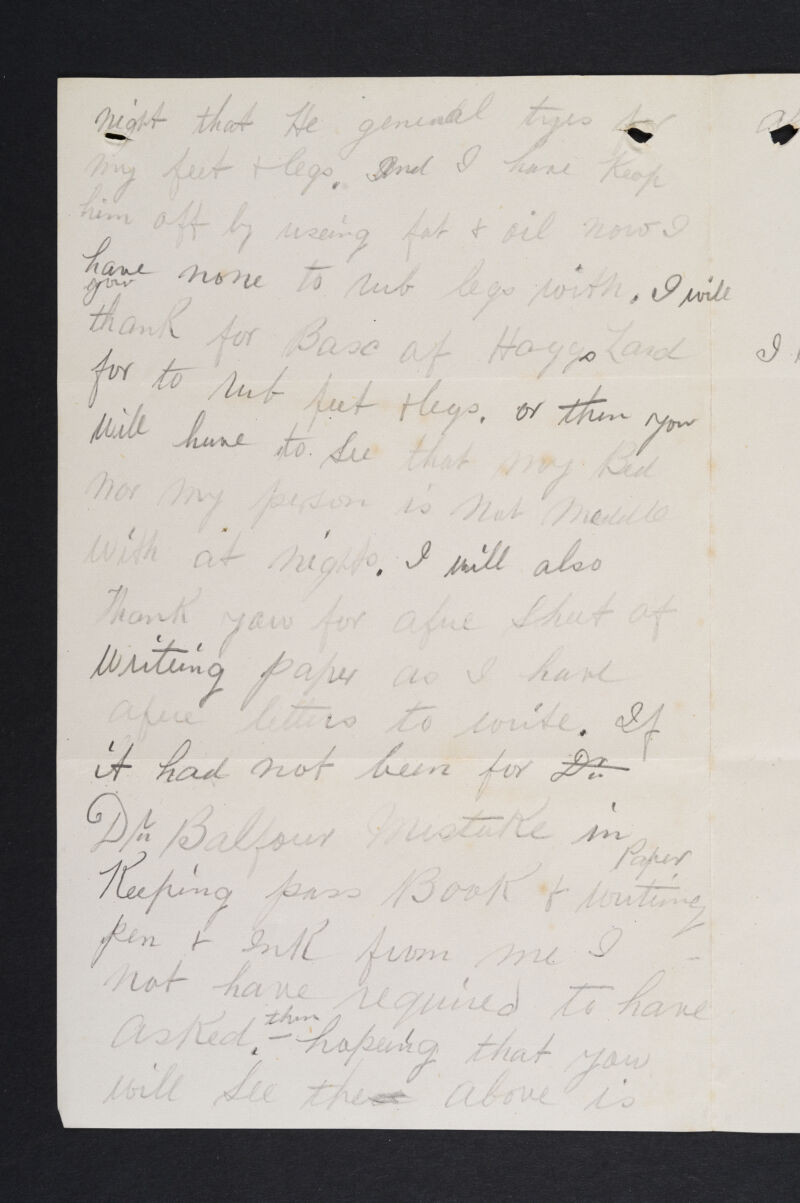 night that He genearal tryes for
my feet & legs. And I have Keep
him off by useing fat & oil now I
have none to rub legs with. I will
you
thank for Baxe af Hoggs Lard
for to rub feet & legs. or then you
Will have to See that my Bed
nor my person is not meddle
With at nights. I will also
Thank yaw for afue Sheet of
Writeing paper as I have
afue letters to write. If
it had not been for Dr.
Dr. Balfour Mistake in
Paper
Keeping pass Book & writing
pen & Ink from me I
not have required to have
Asked. then hopeing that you
will See the above is